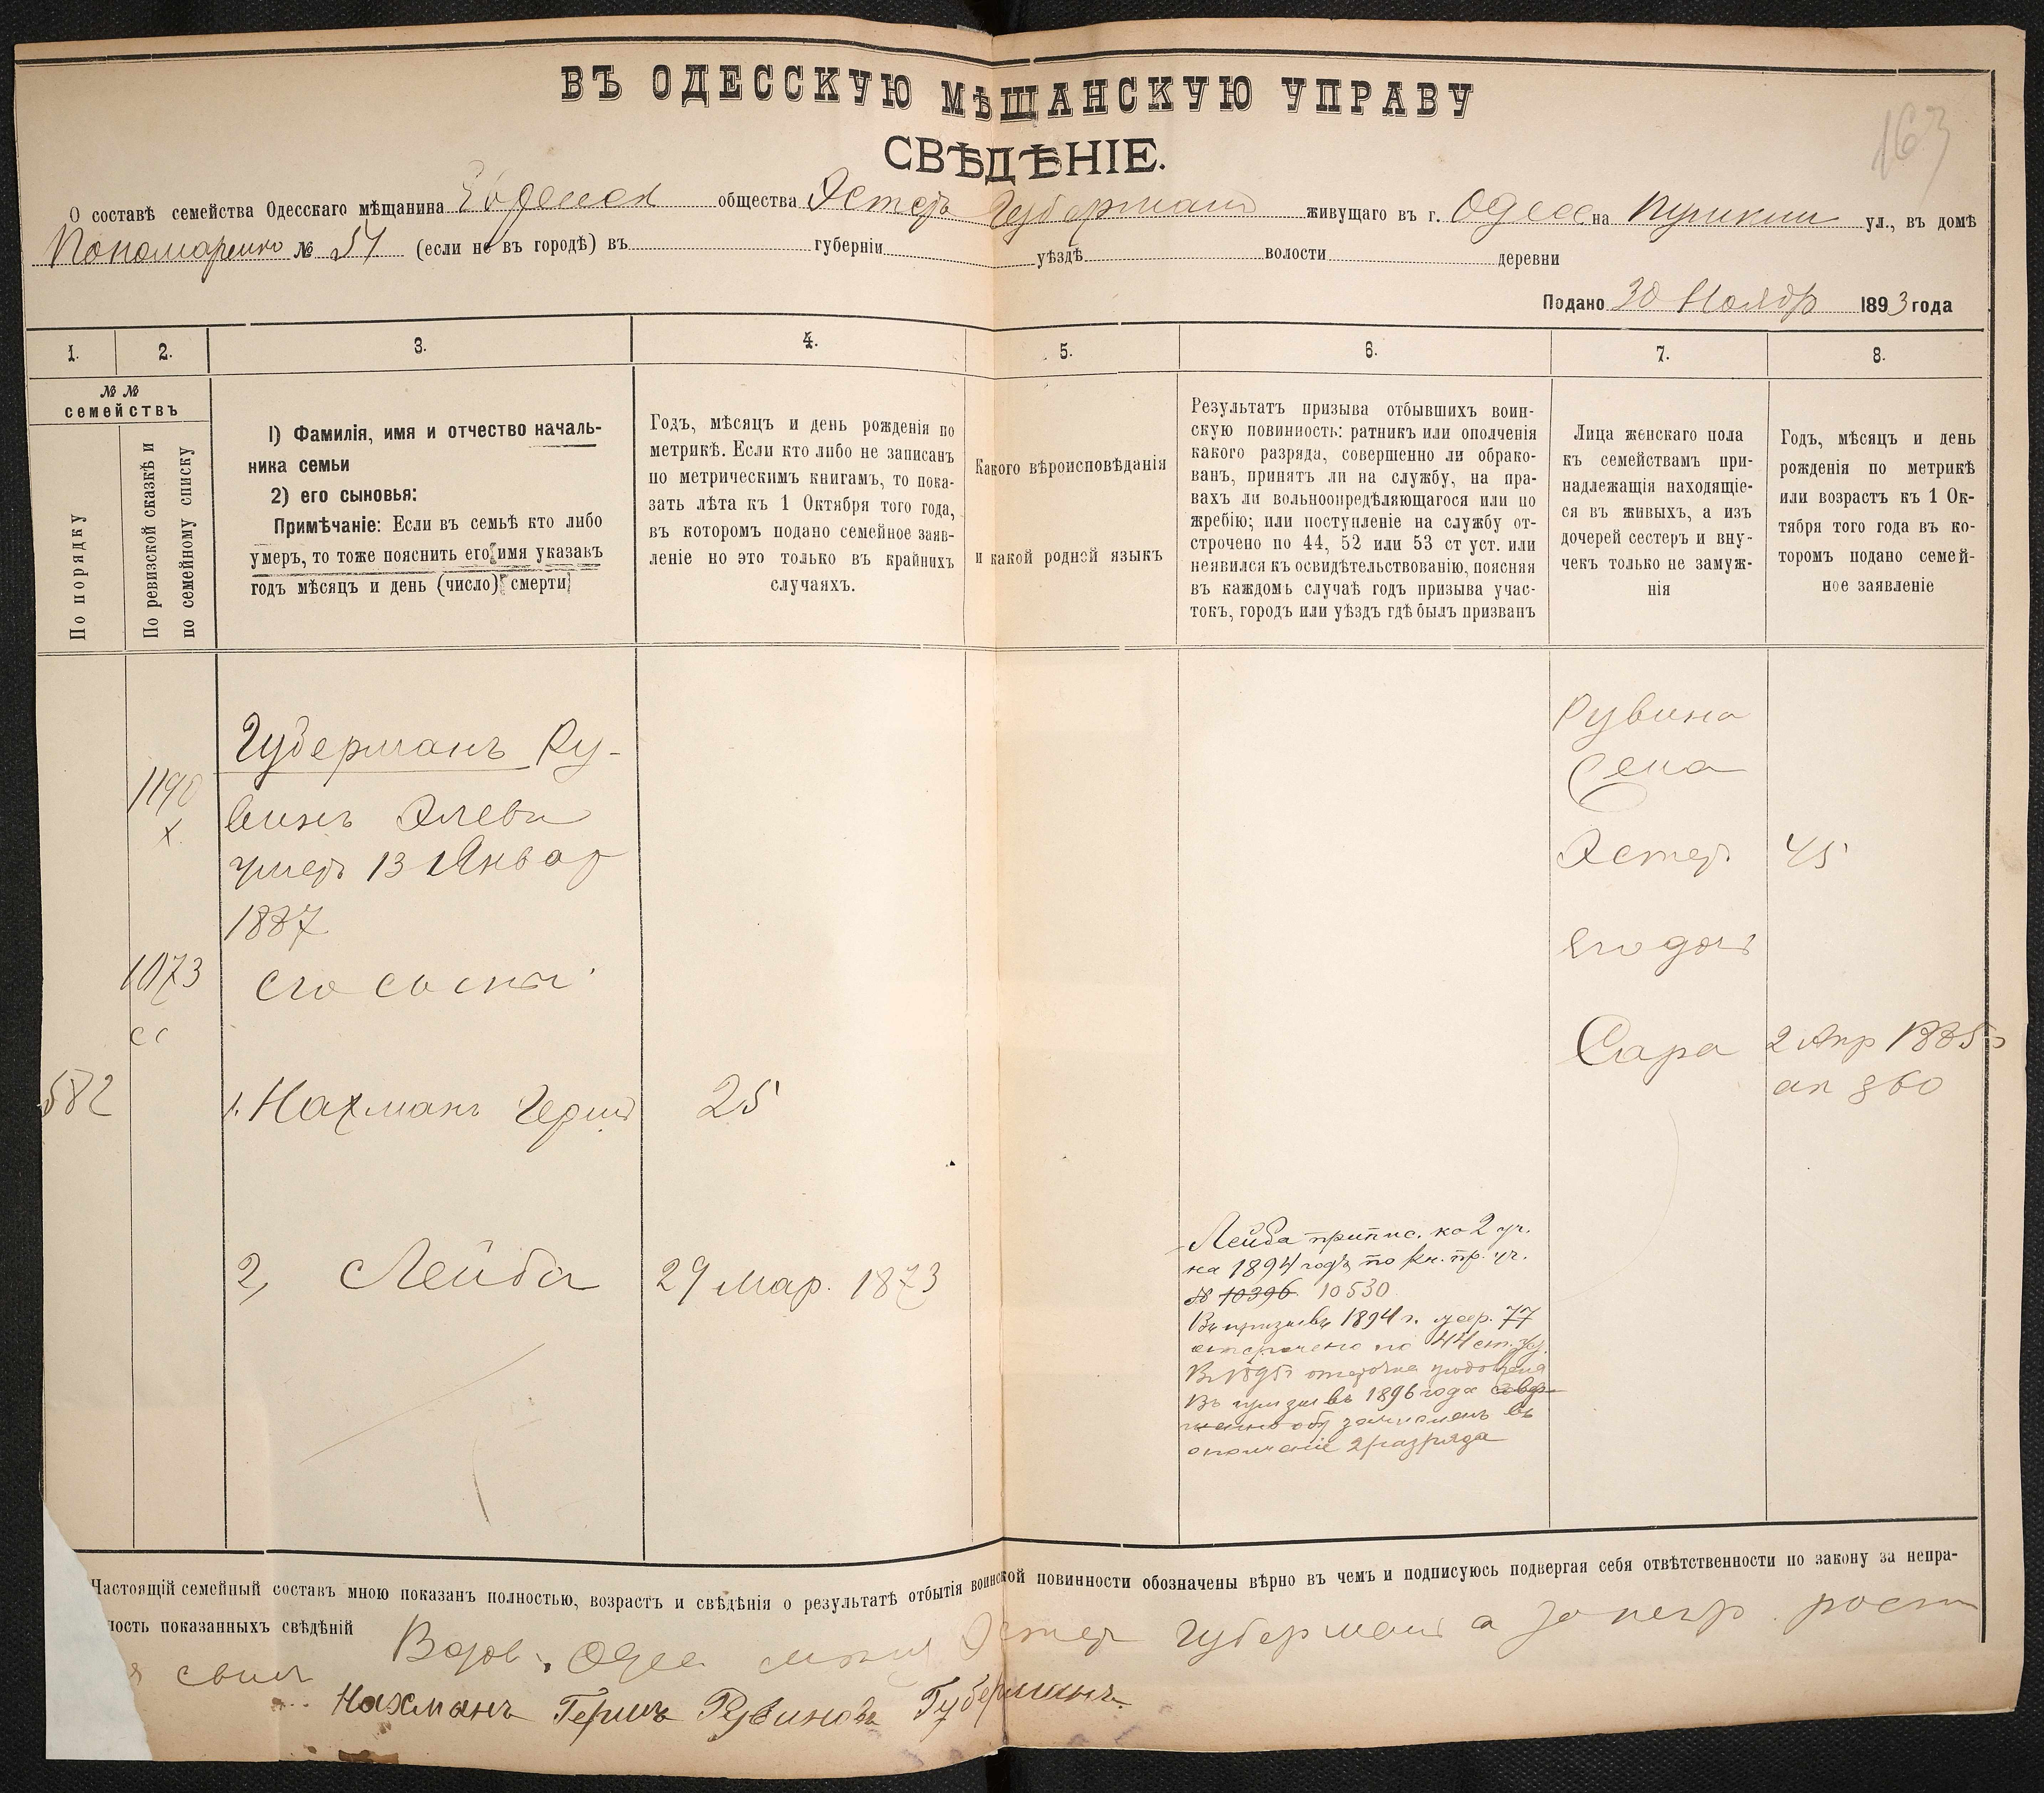 ВЪ ОДЕССКУЮ МѢЩАНСКУЮ УПРАВУ
СВѢДѢНІЕ.
163
О составѣ семейства Одесскаго мѣщанина общества Эстеръ Губерманъ живущаго въ г. Одес на Пушкин ул., въ домѣ
Пономаренко № 51 (если не въ городѣ) въ губерніи уѣздѣ волости деревни
Подано 30 Ноябр 1893 года
1. 2. 3. 4. 5. 6. 7. 8.
№ №
семействъ
По порядку
По ревизской сказкѣ и
по семейному списку
1) Фамилія, имя и отчество началь-
ника семьи
2) его сыновья:
Примѣчаніе: Если въ семьѣ кто либо
умеръ, то тоже пояснить его имя указавъ
годъ мѣсяцъ и день (число) смерти
Годъ, мѣсяцъ и день рожденія по
метрикѣ. Если кто либо не записанъ
по метрическимъ книгамъ, то пока-
зать лѣта къ 1 Октября того года,
въ которомъ подано семейное заяв-
леніе но это только въ крайнихъ
случаяхъ.
Какого вѣроисповѣданія
и какой родной языкъ
Результатъ призыва отбывшихъ воин-
скую повинность: ратникъ или ополченія
какого разряда, совершенно ли обрако-
ванъ, принятъ ли на службу, на пра-
вахъ ли вольноопредѣляющагося или по
жребію; или поступленіе на службу от-
строчено по 44, 52 или 53 ст уст. или
неявился къ освидѣтельствованію, поясняя
въ каждомъ случаѣ годъ призыва учас-
токъ, городъ или уѣздъ гдѣ былъ призванъ
Лица женскаго пола
къ семействамъ при-
надлежащія находящіе-
ся въ живыхъ, а изъ
дочерей сестеръ и вну-
чекъ только не замуж-
нія
Годъ, мѣсяцъ и день
рожденія по метрикѣ
или возрастъ къ 1 Ок-
тября того года въ ко-
торомъ подано семей-
ное заявленіе
1190
х.
1073
сс
582
Губерманъ Ру-
винъ Элевъ
умеръ 13 Январ
1887
его сыны
1. Нахманъ Герш 25
2, Лейба 29 мар. 1873
Лейба припис. ко 2 уч.
на 1894 годъ по кн. пр. уч.
№ 10396 10530
Въ призывъ 1894 г. жер. 77
отсрочено по 44 ст. Уст.
В 1895 отсрочка
Въ призывъ 1896 года совер-
шенно об зачисленъ въ
ополченіе 2 разряда
Рувина
жена
Эстер 45
его доч
Сара 2 Апр 1885
ап 860
Настоящій семейный составъ мною показанъ полностью, возрастъ и свѣдѣнія о результатѣ отбытія воинской повинности обозначены вѣрно въ чемъ и подписуюсь подвергая себя отвѣтственности по закону за непра-
ность показанныхъ свѣдѣній Вдов. Одес Эстер Губерман а за негр. росп
сынъ
Нахманъ Гершъ Рувиновъ Губерманъ.